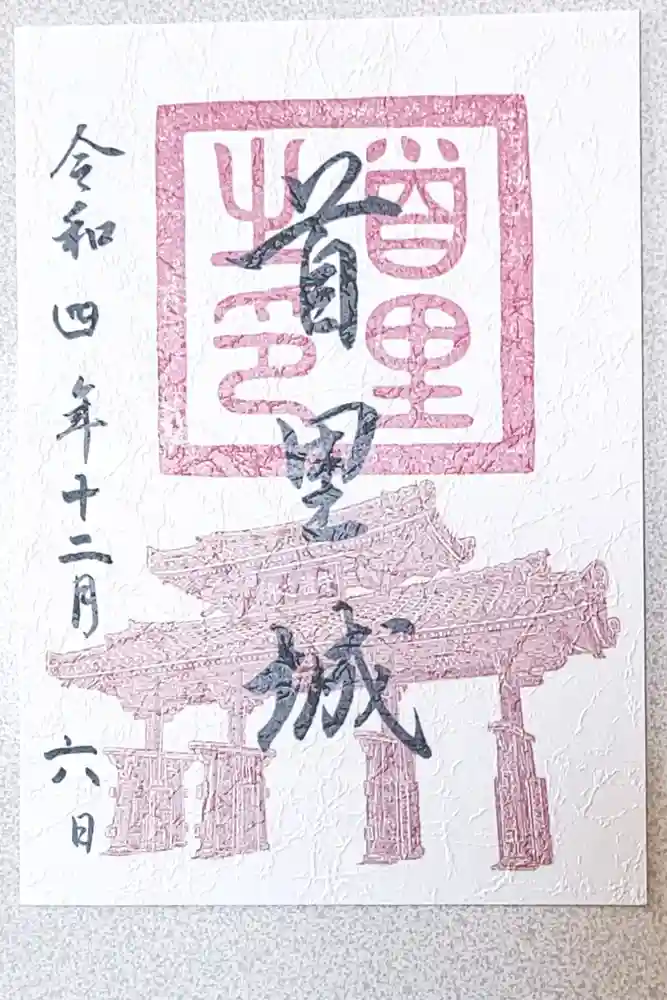 首里城
首里之印
令和四年十二月六日